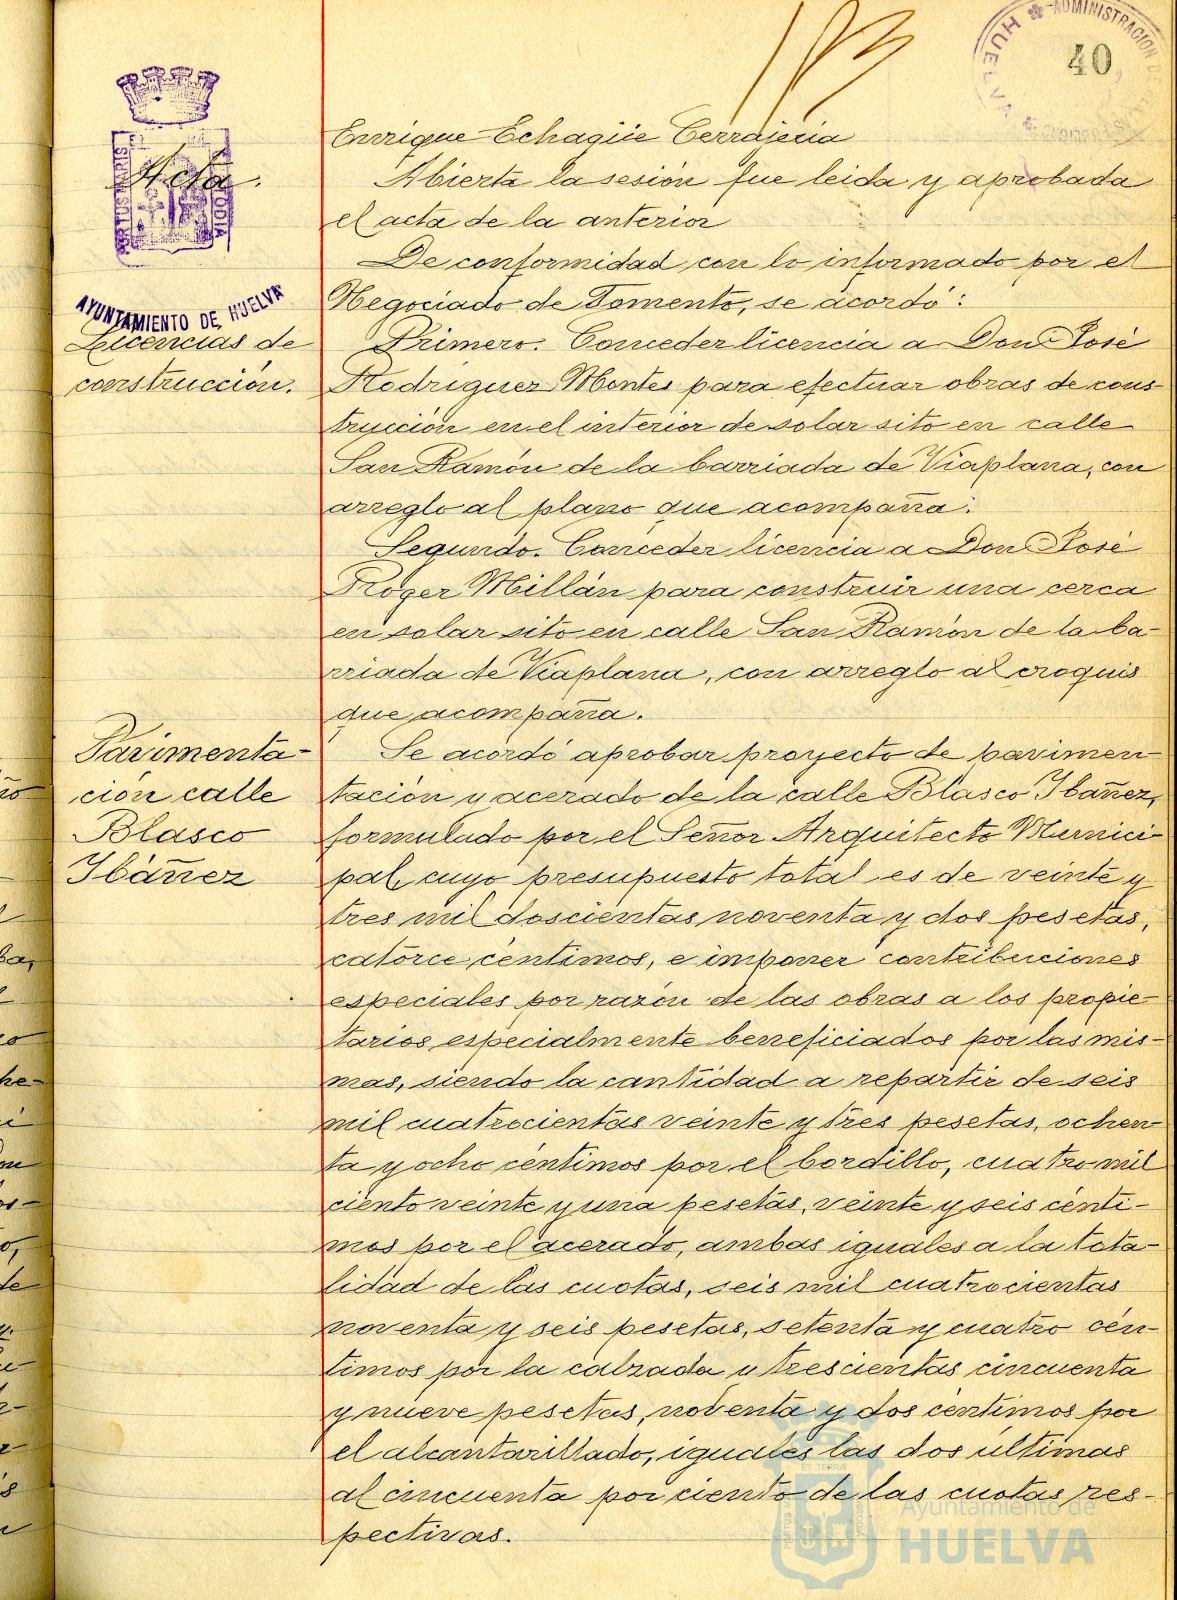 183
ADMINISTRACION DE
HUELVA
40
Enrique Echagüe Cerrajería
Acta.
PORTUS MARIS
CUSTODIA
Abierta la sesión fue leida y aprobada
el acta de la anterior
De conformidad con lo informado por el
Negociado de Fomento, se acordó:
AYUNTAMIENTO DE HUELVA
Licencias de
construcción.
Primero. Conceder licencia a Don José
Rodriguez Montes para efectuar obras de cons-
trucción en el interior de solar sito en calle
San Ramón de la barriada de Viaplana, con
arreglo al plano que acompaña.
Segundo. Conceder licencia a Don José
Roger Millán para construir una cerca
en solar sito en calle San Ramón de la ba-
rriada de Viaplana, con arreglo al croquis
que acompaña.
Pavimenta-
ción calle
Blasco
Ibáñez
Se acordó aprobar proyecto de pavimen-
tación y acerado de la calle Blasco Ibañez,
formulado por el Señor Arquitecto Munici-
pal, cuyo presupuesto total es de veinte y
tres mil doscientas noventa y dos pesetas,
catorce céntimos, e imponer contribuciones
especiales por razón de las obras a los propie-
tarios especialmente beneficiados por las mis-
mas, siendo la cantidad a repartir de seis
mil cuatrocientas veinte y tres pesetas, ochen-
ta y ocho céntimos por el bordillo, cuatro mil
ciento veinte y una pesetas, veinte y seis cénti-
mos por el acerado, ambas iguales a la tota-
lidad de las cuotas, seis mil cuatrocientas
noventa y seis pesetas, setenta y cuatro cén-
timos por la calzada y trescientas cincuenta
y nueve pesetas, noventa y dos céntimos por
el alcantarillado, iguales las dos últimas
al cincuenta por ciento de las cuotas res-
pectivas.
Ayuntamiento de
HUELVA